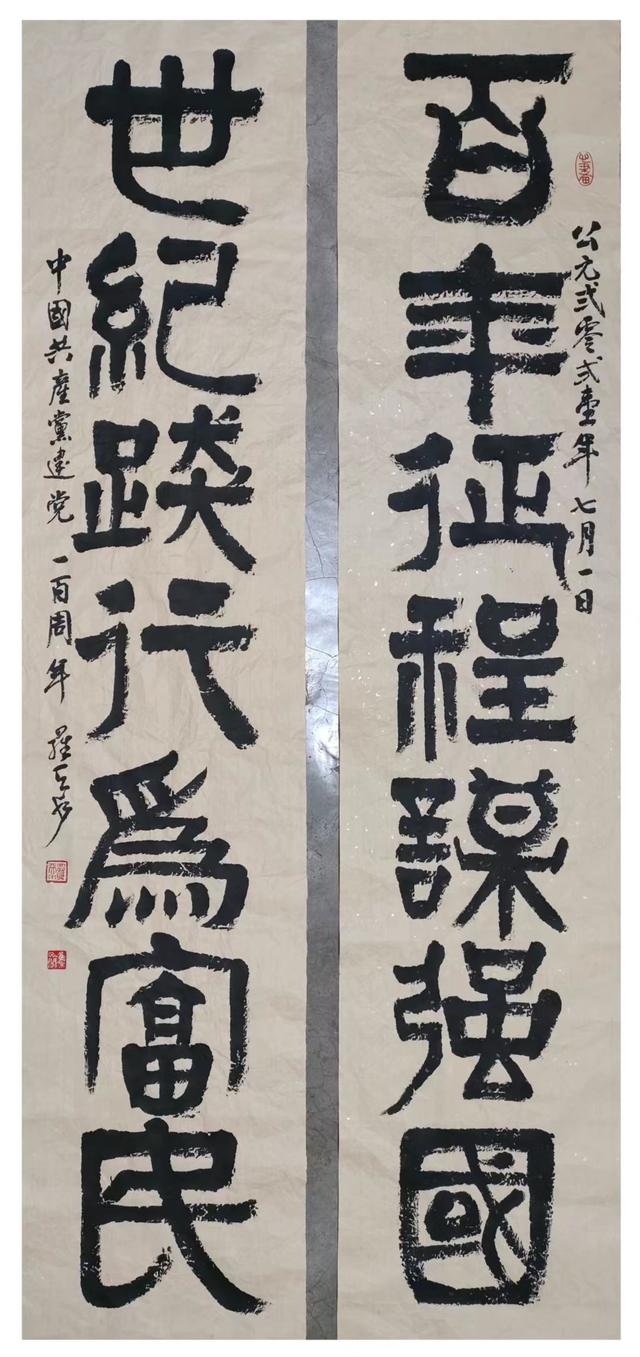 公元弍零弍壹年七月一日
百年征程謀强國
世紀踐行爲富民
中國共産黨建党一百周年 羅